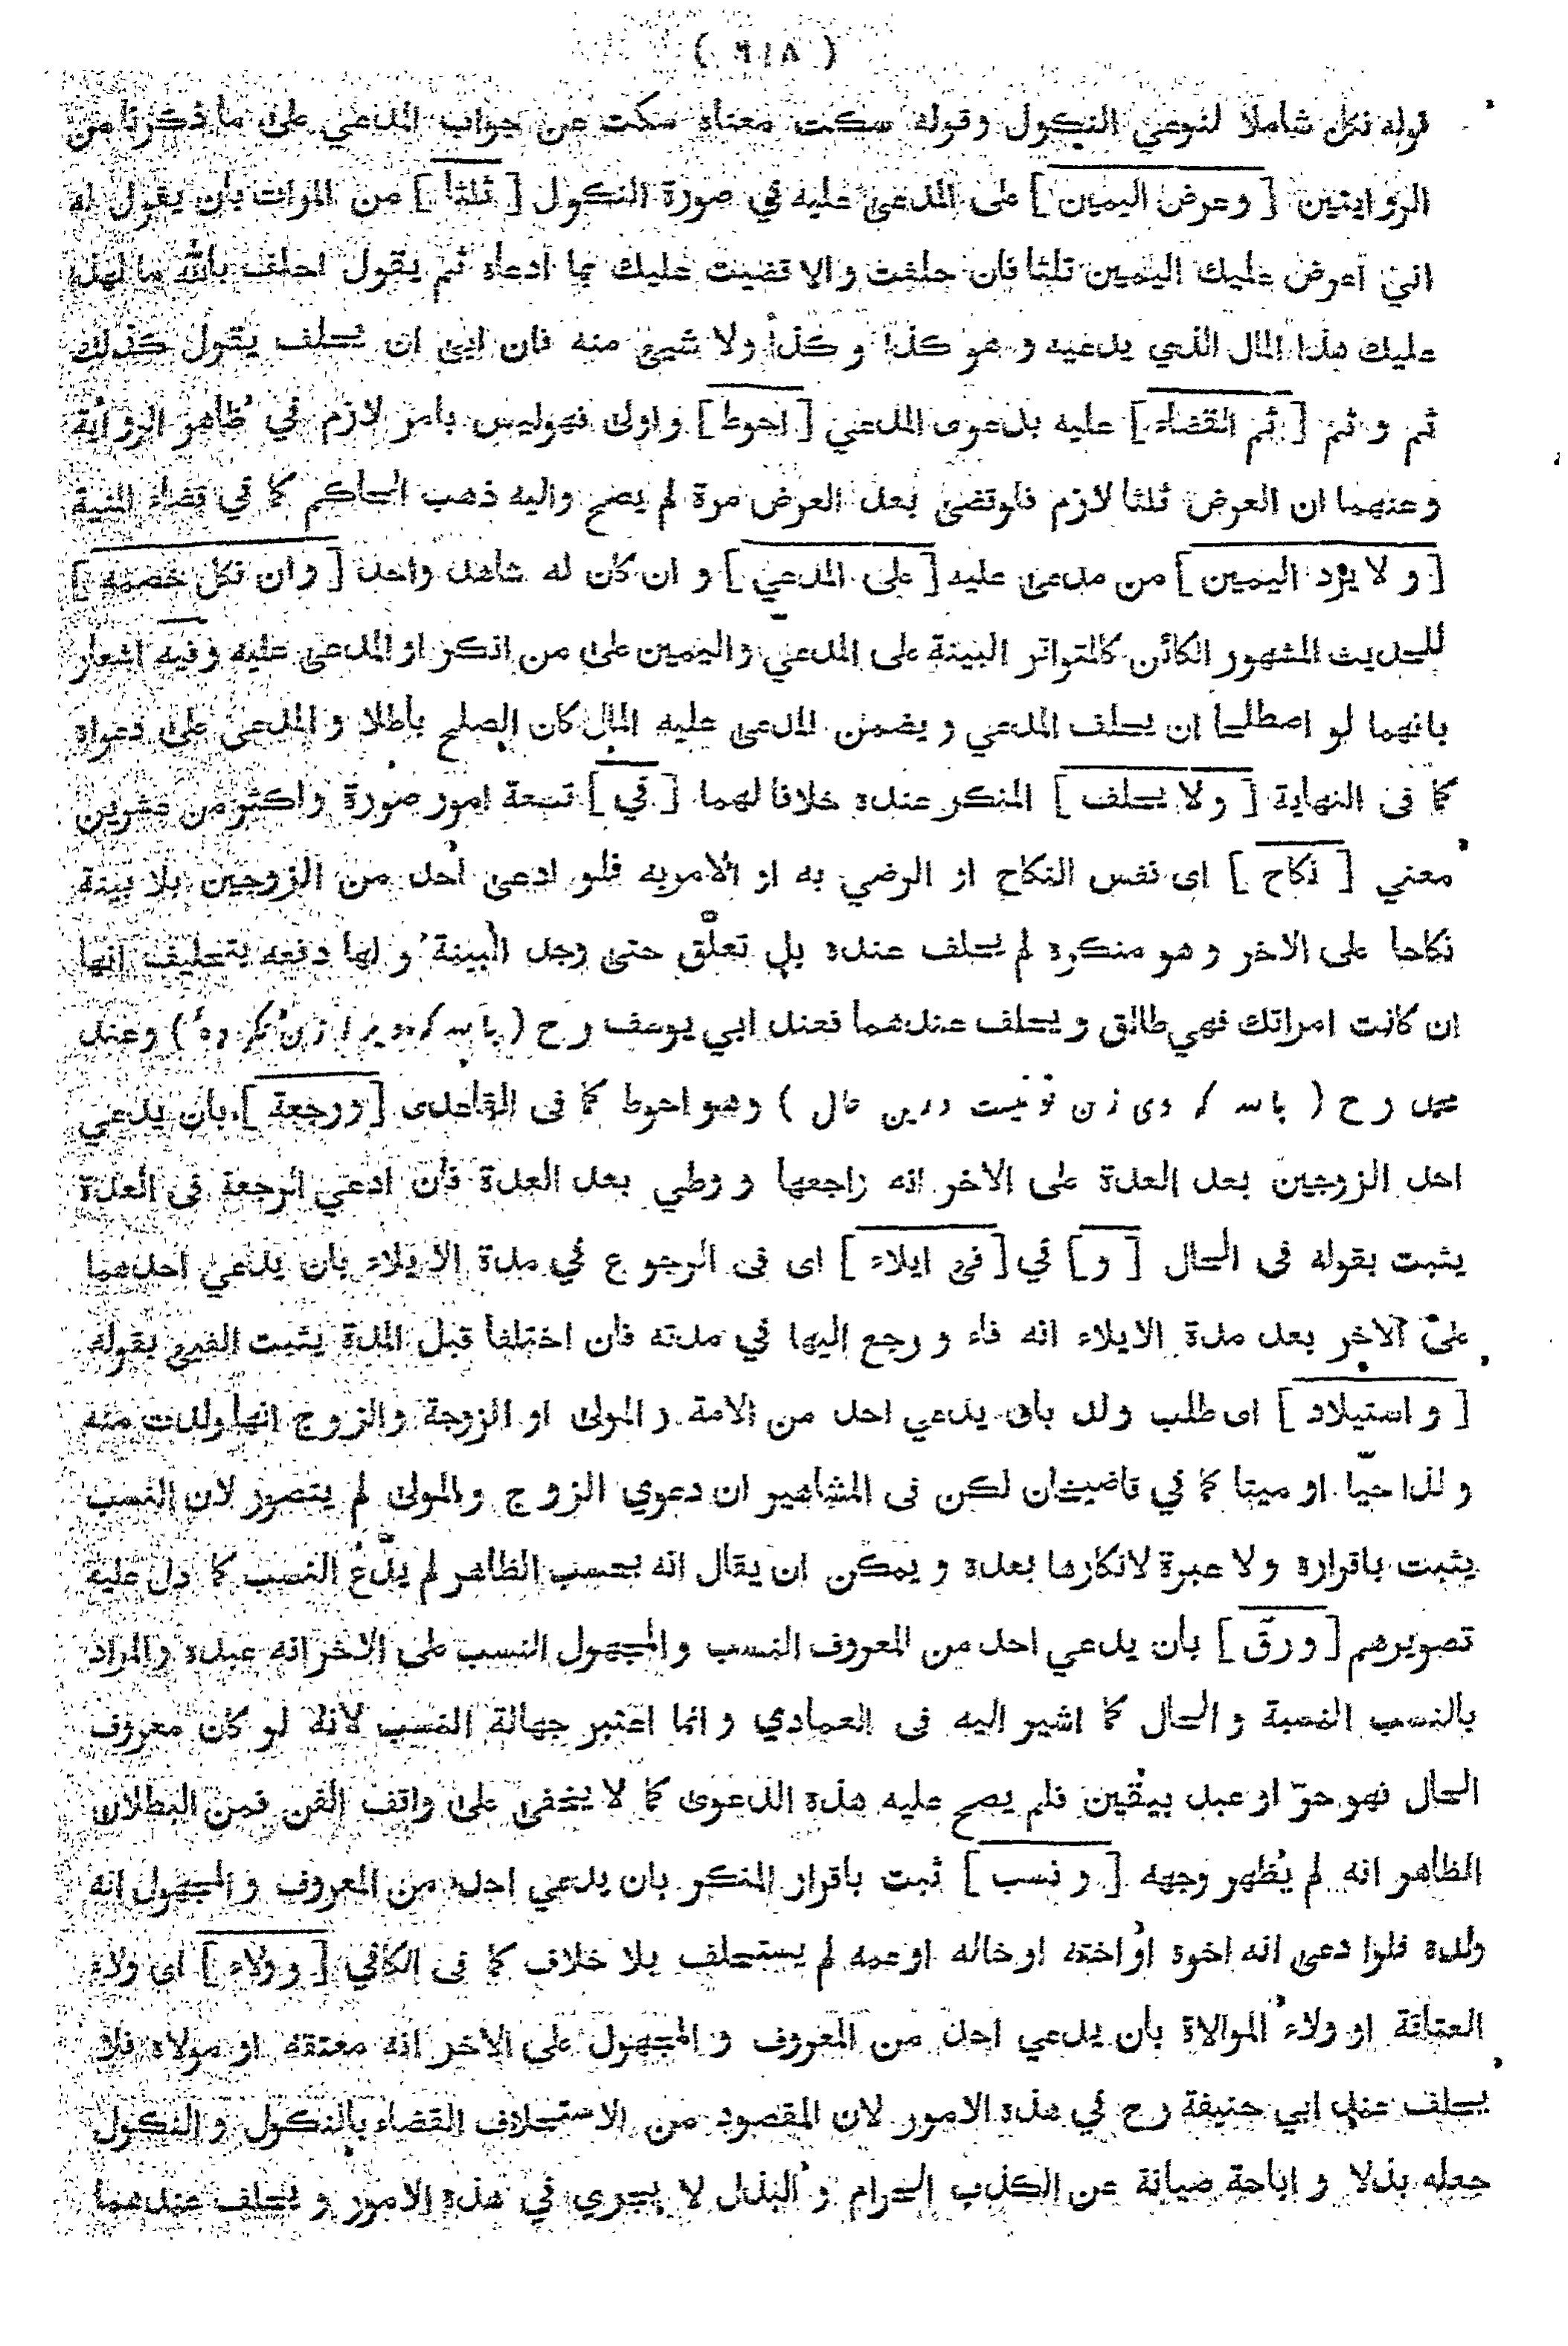 ( ٦١٨ )
قوله نكل شاملا لنوعي النكول وقوله سكت معناه سكت عن جواب المدعي على ما ذكرنا من
الروايتين [ وعرض اليمين ] على المدعى عليه في صورة النكول [ ثلثا ] من المرات بان يقول له
اني اعرض عليك اليمين ثلثا فان حلفت والا قضيت عليك بما ادعاه ثم يقول احلف بالله ما لهذا
عليك هذا المال الذي يدعيه و هو كذا و كذا ولا شيئ منه فان ابى ان يحلف يقول كذلك
ثم و ثم [ ثم القضاء ] عليه بدعوى المدعي [ احوط ] واولى فهوليس بامر لازم في ظاهر الرواية
وعنهما ان العرض ثلثا لازم فلوقضى بعد العرض مرة لم يصح واليه ذهب الحاكم كما في قضاء المنية
[ و لا يرد اليمين ] من مدعى عليه [ على المدعي ] و ان كان له شاهد واحد [ وان نكل خصمه ]
للحديث المشهور الكائن كالمتواتر البينة على المدعي واليمين على من انكر او المدعى عليه وفيه اشعار
بانهما لو اصطلحا ان يحلف المدعي و يضمن المدعى عليه المال كان الصلح باطلا و المدعى على دعواه
كما فى النهاية [ ولا يحلف ] المنكر عنده خلافا لهما [ في ] تسعة امور صورة واكثر من عشرين
معني [ نكاح ] اى نفس النكاح او الرضي به او الامربه فلو ادعى احد من الزوجين بلا بينة
نكاحا على الاخر و هو منكره لم يحلف عنده بل تعلّق حتى وجد البينة و لها دفعه بتحليف انها
ان كانت امراتك فهي طالق و يحلف عندهما فعند ابي يوسف رح ( ) وعند
محمد رح ( زن تو نيست درين حال ) وهو احوط كما فى القاعدى [ ورجعة ] بان يدعي
احد الزوجين بعد العدة على الاخر انه راجعها و وطي بعد العدة فان ادعي الرجعة فى العدة
يثبت بقوله فى الحال [ و ] في [ فئ ايلاء ] اى فى الرجوع في مدة الايلاء بان يدعى احدهما
على الآخر بعد مدة الايلاء انه فاء و رجع اليها في مدته فان اختلفا قبل المدة يثبت الفيئ بقوله
[ و استيلاد ] اى طلب ولد بان يدعي احد من الامة و المولى او الزوجة والزوج انها ولدت منه
ولدا حيّا او ميتا كما في قاضيخان لكن فى المشاهير ان دعوي الزوج والمولى لم يتصور لان النسب
يثبت باقراره ولا عبرة لانكارها بعده و يمكن ان يقال انه بحسب الظاهر لم يدّع النسب كما دل عليه
تصويرهم [ ورقّ ] بان يدعي احد من المعروف النسب و المجهول النسب على الاخر انه عبده والمراد
بالنسب النسبة و الحال كما اشير اليه فى العمادي و انما اعتبر جهالة النسب لانه لو كان معروف
الحال فهو حرّ او عبد بيقين فلم يصح عليه هذه الدعوى كما لا يخفى على واقف الفن فمن البطلان
الظاهر انه لم يظهر وجهه [ و نسب ] ثبت باقرار المنكر بان يدعي احد من المعروف والمجهول انه
ولده فلوا دعى انه اخوه اواخته اوخاله اوعمه لم يستحلف بلا خلاف كما فى الكافي [ وولاء ] اى ولاء
العتاقة او ولاء الموالاة بان يدعي احد من المعروف و المجهول على الاخر انه معتقه او مولاه فلا
يحلف عند ابي حنيفة رح في هذه الامور لان المقصود من الاستحلاف القضاء بالنكول و النكول
جعله بذلا و اباحة صيانة عن الكذب الحرام و البذل لا يجري في هذه الامور و يحلف عندهما